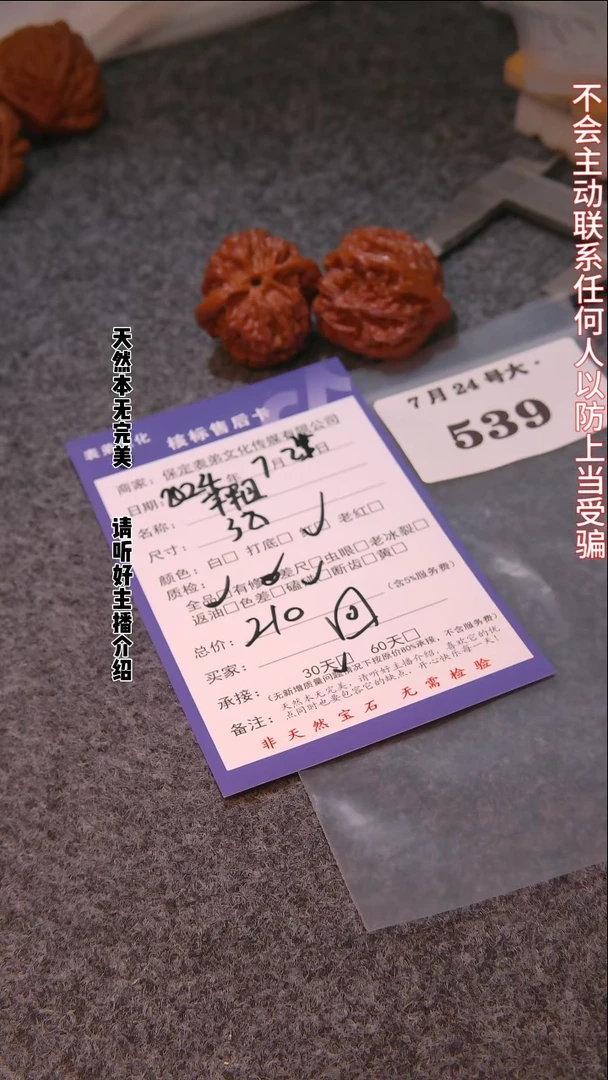 不会主动联系任何人以防上当受骗
天然本无完美 请听好主播介绍
7月24号大·
539
表弟文化 核标售后卡
商家：保定表弟文化传媒有限公司
日期：2024年7月24日
名称：
尺寸：38
颜色：白□ 打底□ 红□ 老红□
质检：
全品□有修□差尺□虫眼□老冰裂□
返油□色差□磕□断齿□黄□
总价：210 回 (含5%服务费)
买家：
承接：30天□ 60天□
(无新增质量问题情况下按原价80%承接，不含服务费)
备注：天然本无完美，请听好主播介绍，喜欢它的优
点同时也要包容它的缺点，开心快乐每一天！
非天然宝石 无需检验